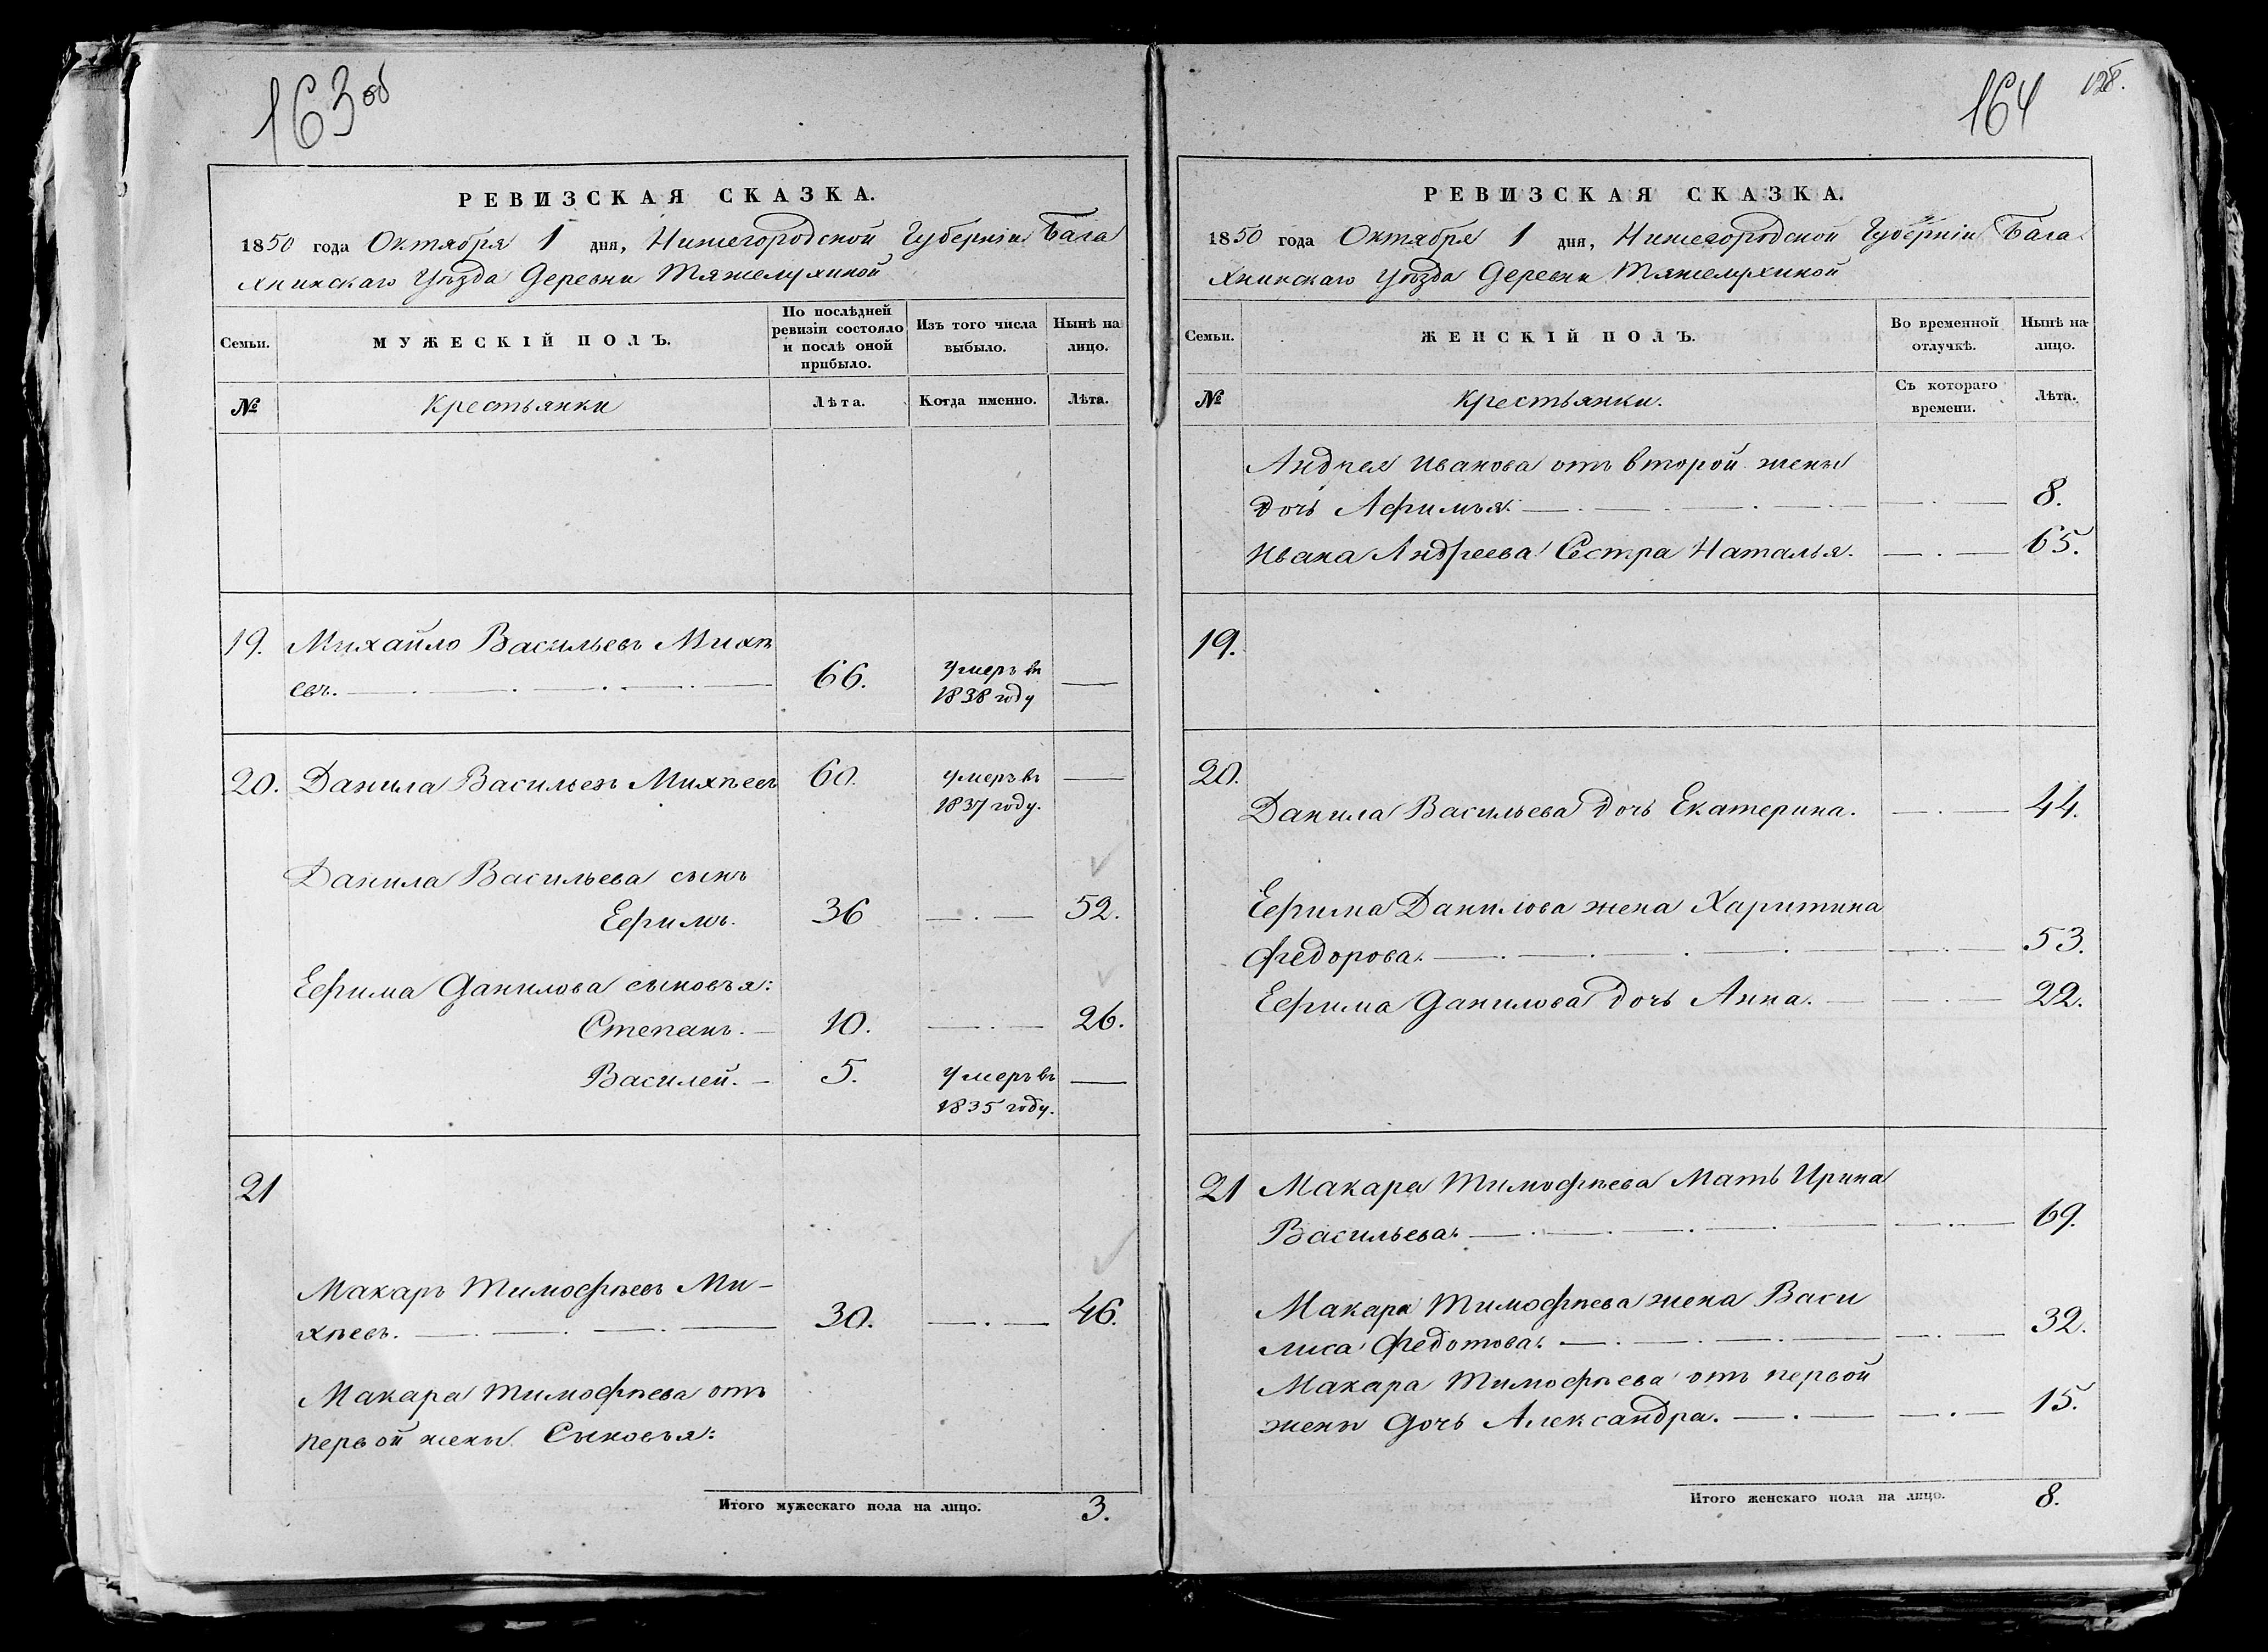 163 об
РЕВИЗСКАЯ СКАЗКА.
1850 года Октября 1 дня, Нижегородской Губерніи Бала
хнинскаго Уѣзда Деревни Тяжелухиной
Семьи.
МУЖЕСКІЙ ПОЛЪ.
По послѣдней ревизіи состояло и послѣ оной прибыло.
Изъ того числа выбыло.
Нынѣ на лицо.
№
Крестьянки
Лѣта.
Когда именно.
Лѣта.
19. Михайло Васильевъ Михѣ
евъ. 66. Умеръ въ 1838 году —
20. Данила Васильевъ Михѣевъ 60. Умеръ въ 1837 году. —
Данила Васильева сынъ
Ефимъ. 36 — . — 52.
Ефима Данилова сыновья:
Степанъ. — 10. — . — 26.
Василей. — 5. Умеръ въ 1835 году. —
21
Макаръ Тимофѣевъ Ми-
хѣевъ. 30. — . — 46.
Макара Тимофѣева отъ
первой жены Сыновья:
Итого мужескаго пола на лицо. 3.
164 128.
РЕВИЗСКАЯ СКАЗКА.
1850 года Октября 1 дня, Нижегородской Губерніи Бала
хнинскаго Уѣзда Деревни Тяжелухиной
Семьи.
ЖЕНСКІЙ ПОЛЪ.
Во временной отлучкѣ.
Нынѣ на лицо.
№
Крестьянки.
Съ котораго времени.
Лѣта.
Андрея Иванова отъ второй жены
дочь Афимья. — . — 8.
Ивана Андреева Сестра Наталья. — . — 65.
19.
20.
Данила Васильева дочь Екатерина. — . — 44.
Ефима Данилова жена Харитина
Федорова. — . — 53.
Ефима Данилова дочь Анна. — . — 22.
21 Макара Тимофѣева Мать Ирина
Васильева. — . — 69.
Макара Тимофѣева жена Васи
лиса Федотова. — . — 32.
Макара Тимофѣева отъ первой
жены Дочь Александра. — . — 15.
Итого женскаго пола на лицо. 8.